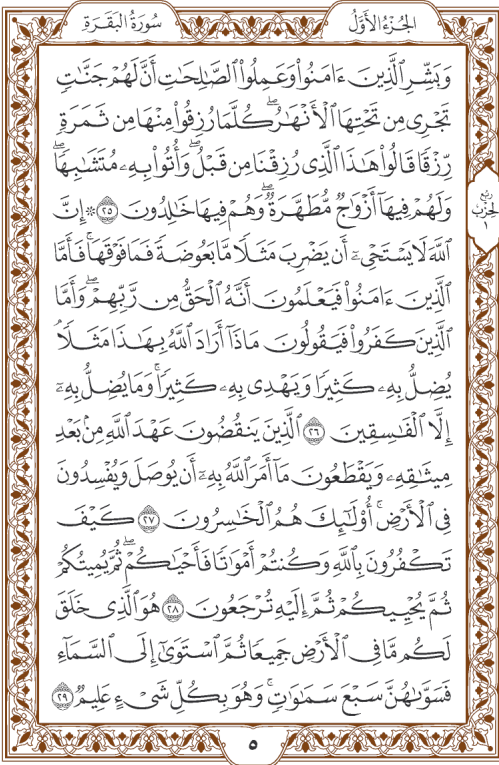 الجُزْءُ الأَوَّلُ
سُورَةُ البَقَرَةِ
وَبَشِّرِ ٱلَّذِينَ ءَامَنُوا۟ وَعَمِلُوا۟ ٱلصَّٰلِحَٰتِ أَنَّ لَهُمْ جَنَّٰتٍ
تَجْرِى مِن تَحْتِهَا ٱلْأَنْهَٰرُ ۖ كُلَّمَا رُزِقُوا۟ مِنْهَا مِن ثَمَرَةٍ
رِّزْقًا قَالُوا۟ هَٰذَا ٱلَّذِى رُزِقْنَا مِن قَبْلُ ۖ وَأُتُوا۟ بِهِۦ مُتَشَٰبِهًا ۖ
وَلَهُمْ فِيهَآ أَزْوَٰجٌ مُّطَهَّرَةٌ ۖ وَهُمْ فِيهَا خَٰلِدُونَ ٢٥ ۞ إِنَّ
رُبْع
الحِزْب
١
ٱللَّهَ لَا يَسْتَحْىِۦٓ أَن يَضْرِبَ مَثَلًا مَّا بَعُوضَةً فَمَا فَوْقَهَا ۚ فَأَمَّا
ٱلَّذِينَ ءَامَنُوا۟ فَيَعْلَمُونَ أَنَّهُ ٱلْحَقُّ مِن رَّبِّهِمْ ۖ وَأَمَّا
ٱلَّذِينَ كَفَرُوا۟ فَيَقُولُونَ مَاذَآ أَرَادَ ٱللَّهُ بِهَٰذَا مَثَلًا ۘ
يُضِلُّ بِهِۦ كَثِيرًا وَيَهْدِى بِهِۦ كَثِيرًا ۚ وَمَا يُضِلُّ بِهِۦٓ
إِلَّا ٱلْفَٰسِقِينَ ٢٦ ٱلَّذِينَ يَنقُضُونَ عَهْدَ ٱللَّهِ مِنۢ بَعْدِ
مِيثَٰقِهِۦ وَيَقْطَعُونَ مَآ أَمَرَ ٱللَّهُ بِهِۦٓ أَن يُوصَلَ وَيُفْسِدُونَ
فِى ٱلْأَرْضِ ۚ أُو۟لَٰٓئِكَ هُمُ ٱلْخَٰسِرُونَ ٢٧ كَيْفَ
تَكْفُرُونَ بِٱللَّهِ وَكُنتُمْ أَمْوَٰتًا فَأَحْيَٰكُمْ ۖ ثُمَّ يُمِيتُكُمْ
ثُمَّ يُحْيِيكُمْ ثُمَّ إِلَيْهِ تُرْجَعُونَ ٢٨ هُوَ ٱلَّذِى خَلَقَ
لَكُم مَّا فِى ٱلْأَرْضِ جَمِيعًا ثُمَّ ٱسْتَوَىٰٓ إِلَى ٱلسَّمَآءِ
فَسَوَّىٰهُنَّ سَبْعَ سَمَٰوَٰتٍ ۚ وَهُوَ بِكُلِّ شَىْءٍ عَلِيمٌ ٢٩
٥